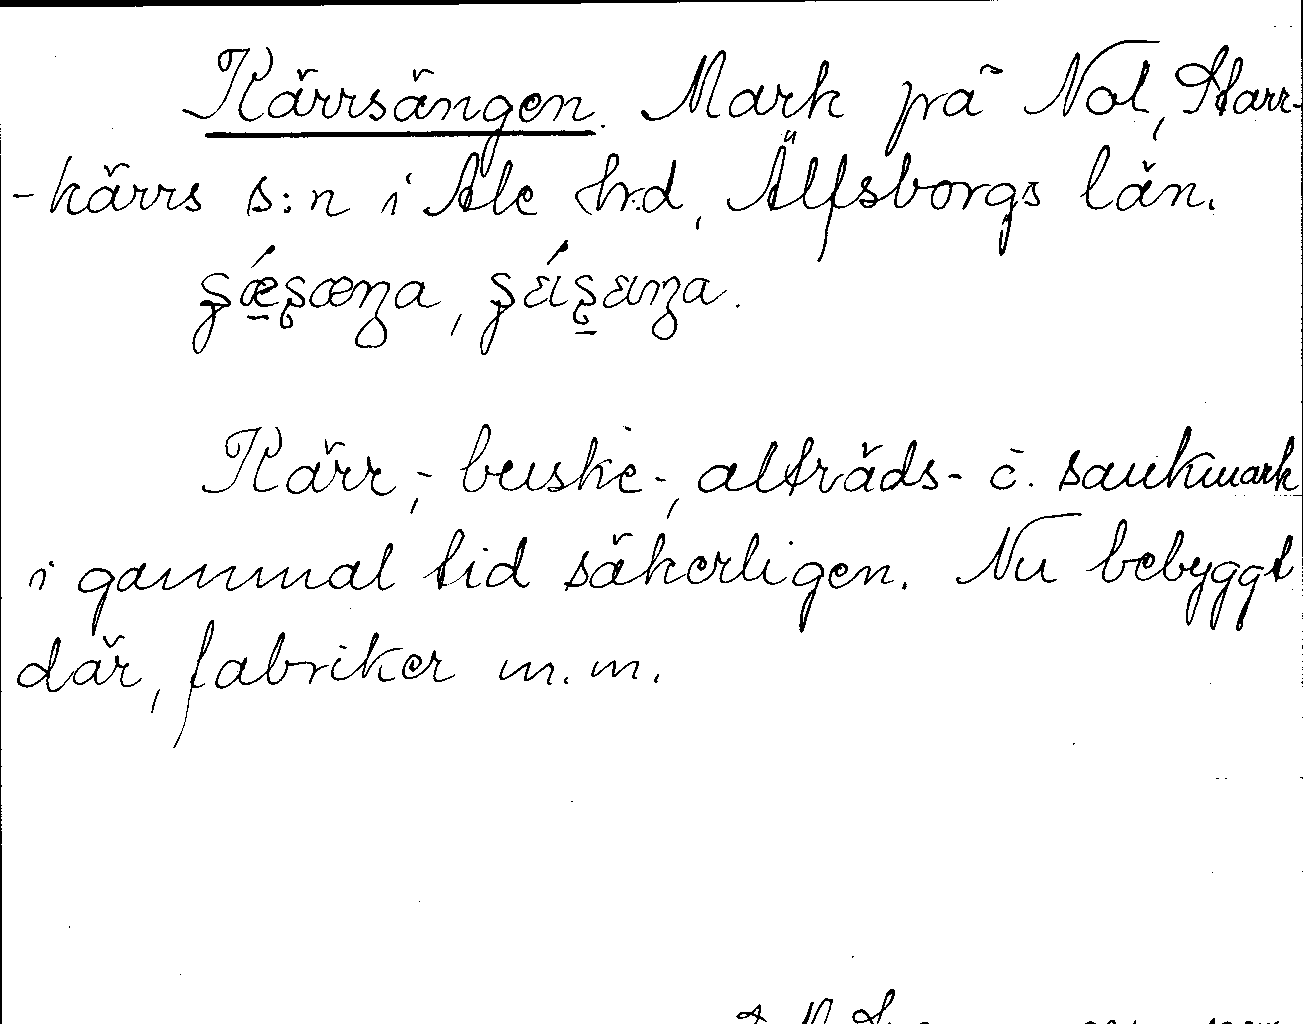 Kärrsängen. Mark på Nol, Starr-
-kärrs s:n i Ale hrd, Älfsborgs län.
Kärr-, buske-, alträds- o. sankmark
i gammal tid säkerligen. Nu bebyggt
där, fabriker m.m.